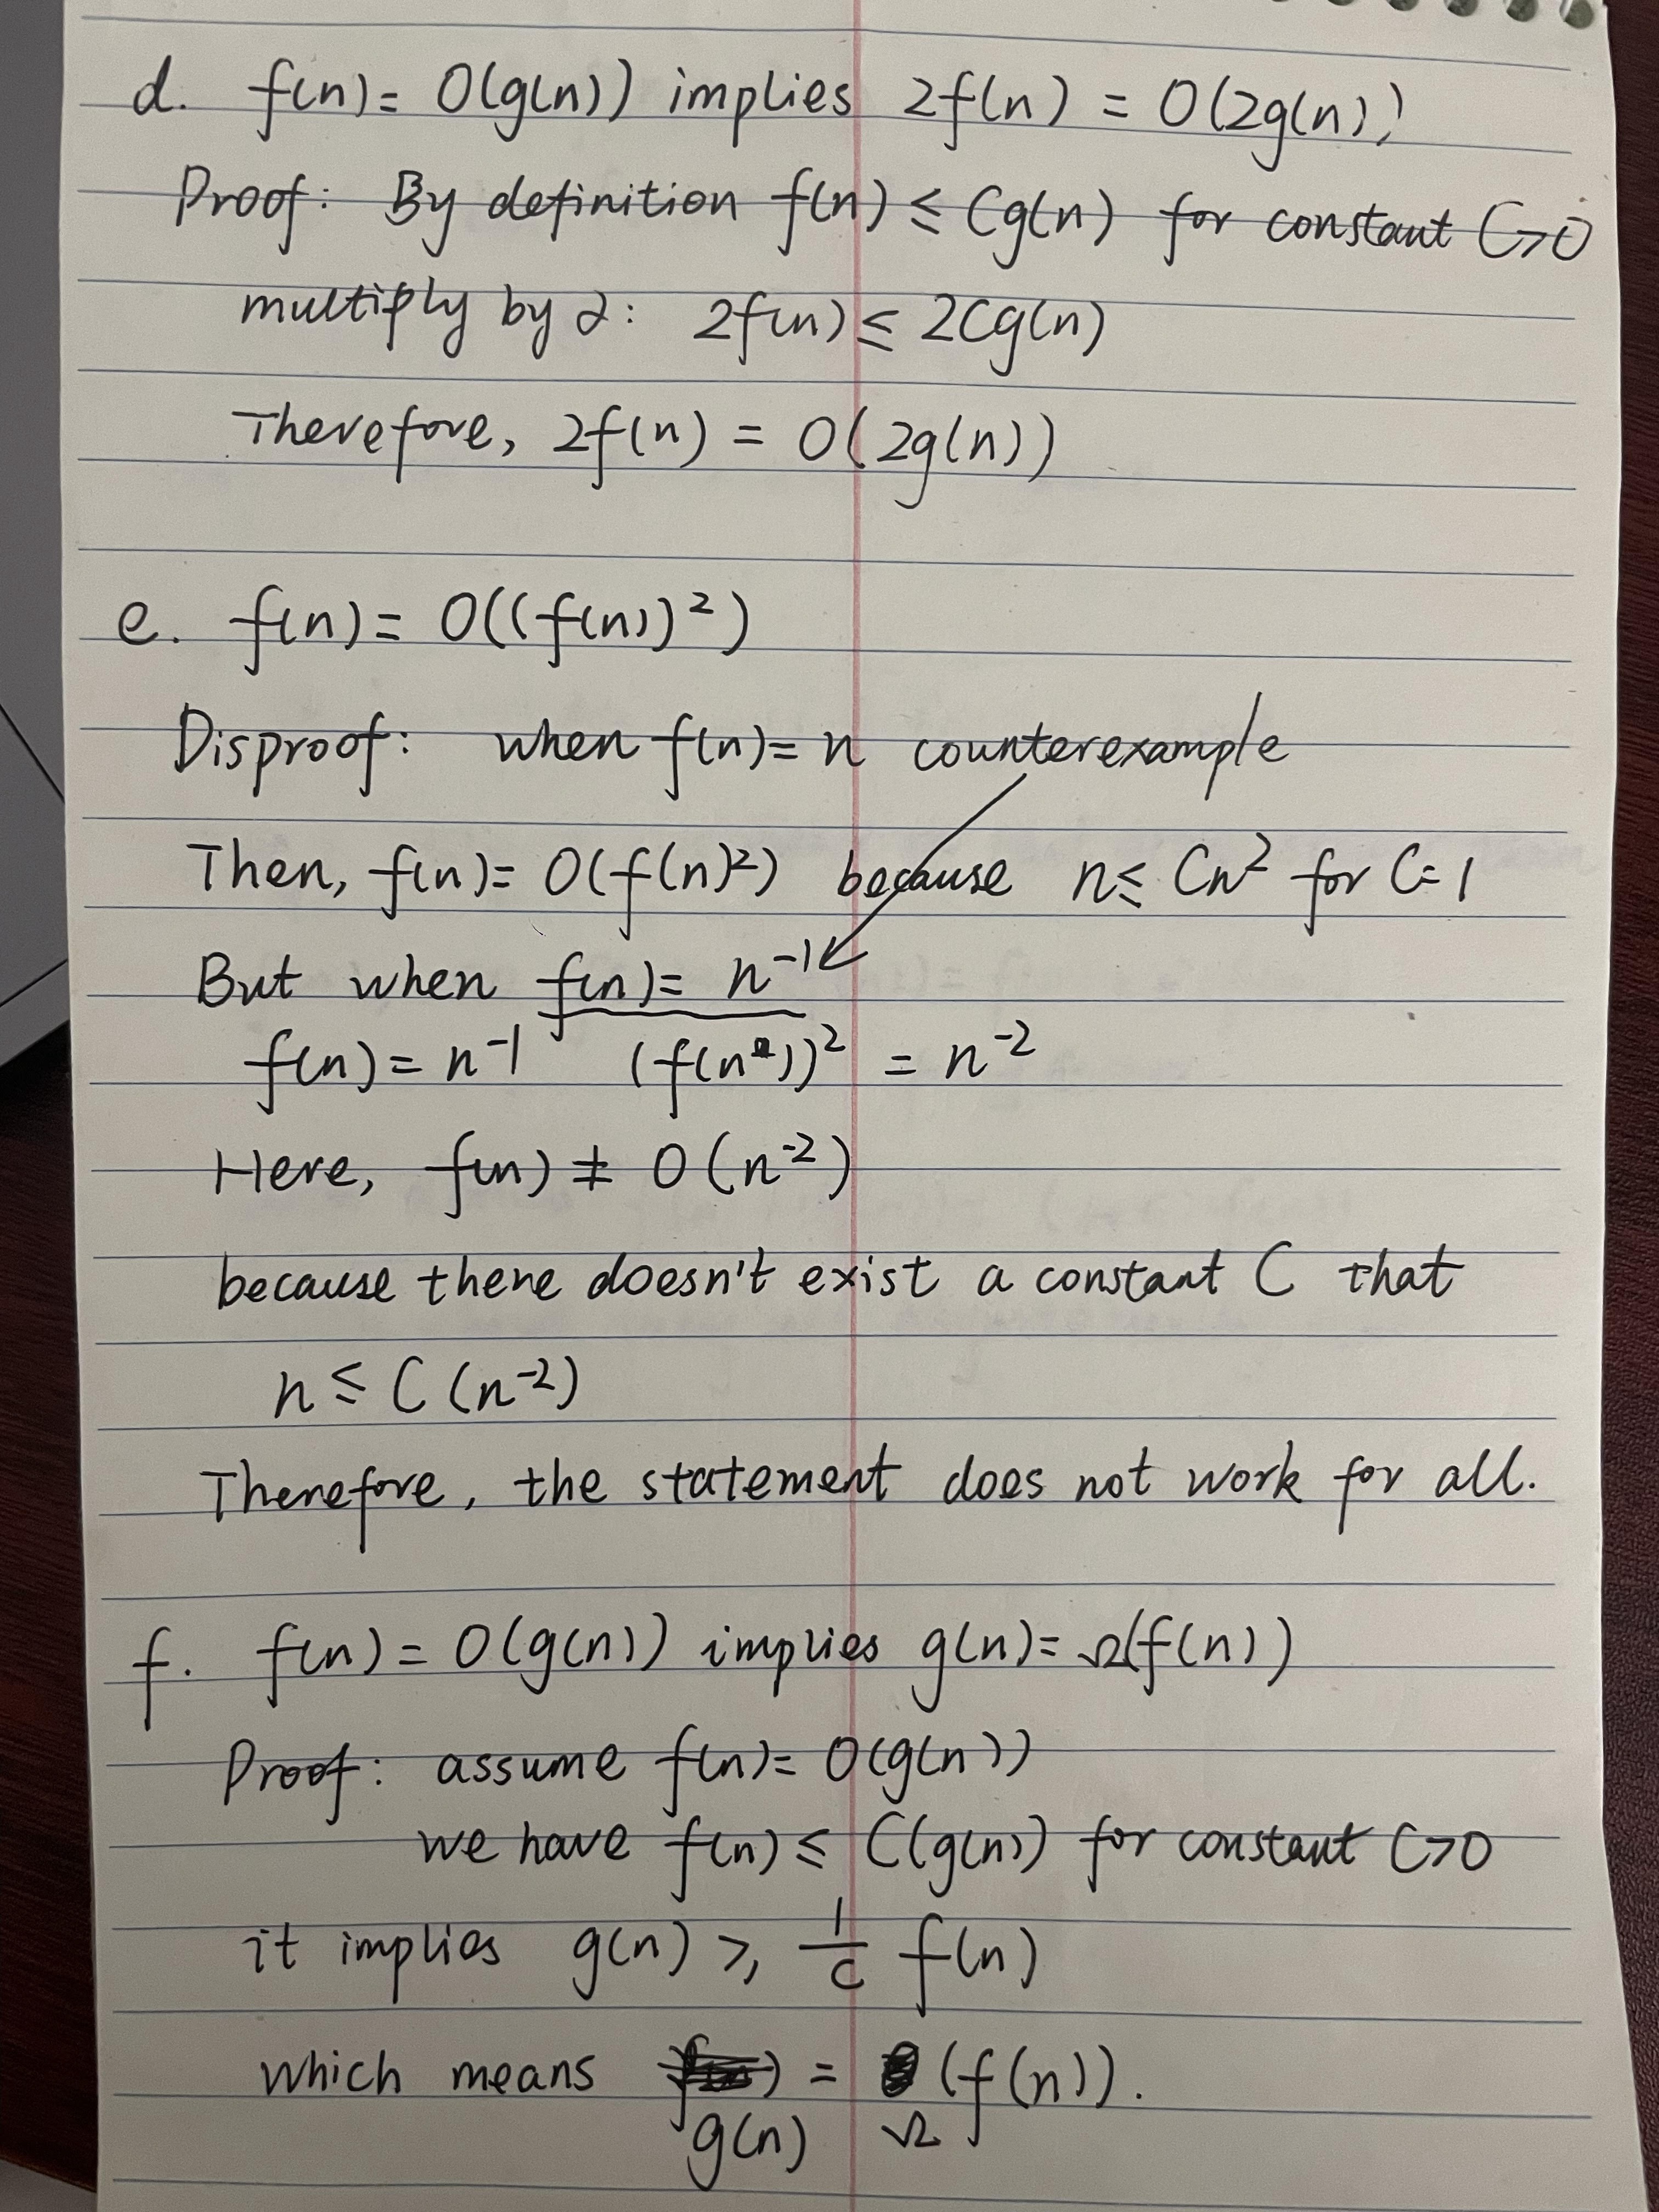 d. f(n) = O(g(n)) implies 2f(n) = O(2g(n))
Proof: By definition f(n) ≤ Cg(n) for constant C>0
multiply by 2: 2f(n) ≤ 2Cg(n)
Therefore, 2f(n) = O(2g(n))
e. f(n) = O((f(n))²)
Disproof: when f(n) = n counterexample
Then, f(n) = O(f(n)²) because n ≤ Cn² for C=1
But when f(n) = n⁻¹
f(n) = n⁻¹ (f(n))² = n⁻²
Here, f(n) ≠ O(n⁻²)
because there doesn't exist a constant C that
n ≤ C(n⁻²)
Therefore, the statement does not work for all.
f. f(n) = O(g(n)) implies g(n) = Ω(f(n))
Proof: assume f(n) = O(g(n))
we have f(n) ≤ C(g(n)) for constant C>0
it implies g(n) ≥ 1/C f(n)
which means = (f(n)).
g(n) Ω